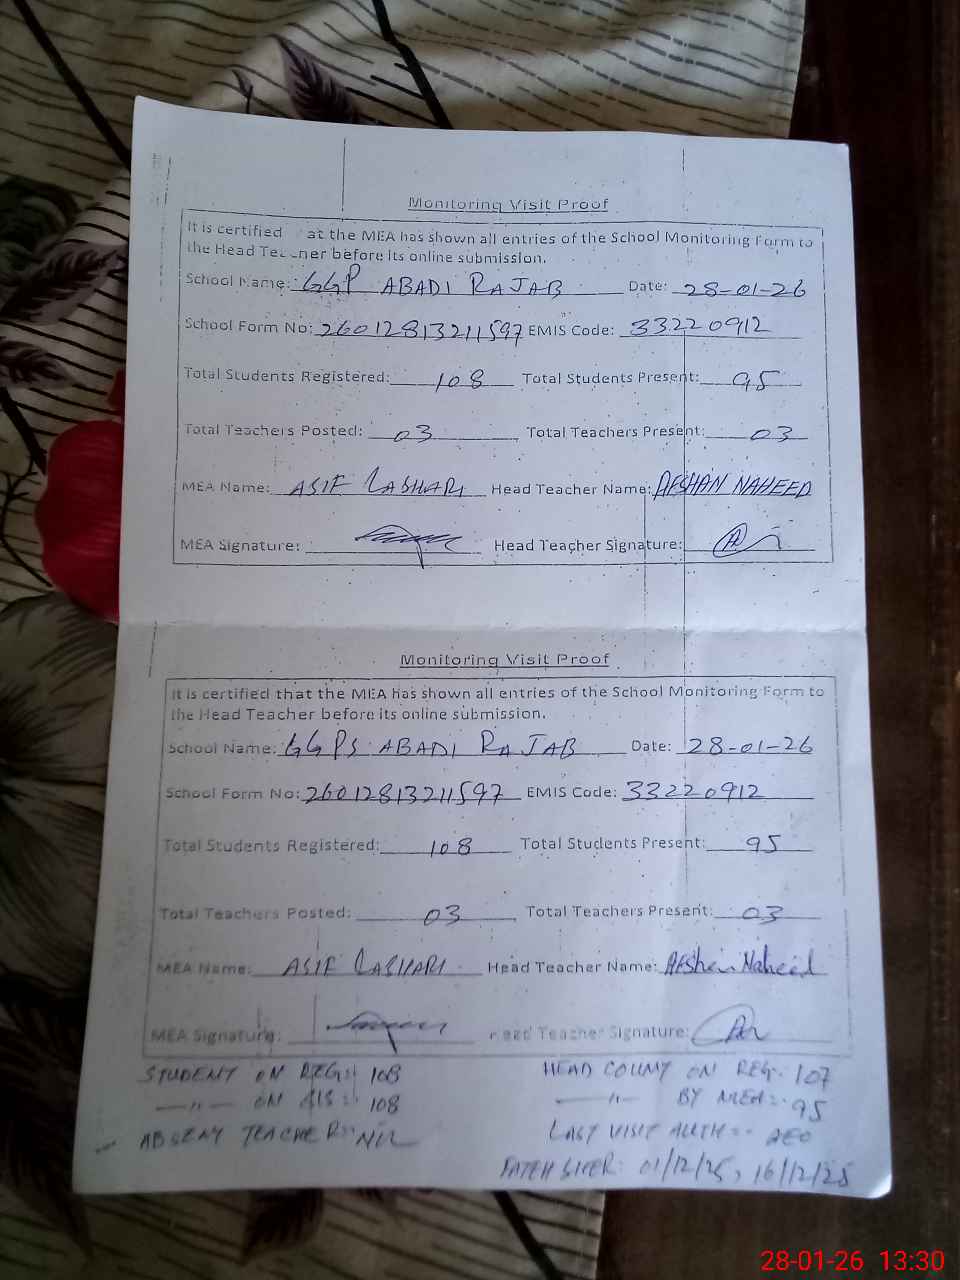 Monitoring Visit Proof
It is certified at the MEA has shown all entries of the School Monitoring Form to
the Head before its online submission.
School Name: GGP ABADI RAJAB Date: 28-01-26
School Form No: 26012813211597 EMIS Code: 33220912
Total Students Registered: 108 Total Students Present: 95
Total Teachers Posted: 03 Total Teachers Present: 03
MEA Name: ASIF LASHARI Head Teacher Name: AFSHAN NAHEED
MEA Signature: Head Teacher Signature:
Monitoring Visit Proof
It is certified that the MEA has shown all entries of the School Monitoring Form to
the Head Teacher before its online submission.
School Name: GGPS ABADI RAJAB Date: 28-01-26
School Form No: 26012813211597 EMIS Code: 33220912
Total Students Registered: 108 Total Students Present: 95
Total Teachers Posted: 03 Total Teachers Present: 03
MEA Name: ASIF LASHARI Head Teacher Name: Afshan Naheed
MEA Signature: Head Teacher Signature:
STUDENT ON REG:- 108 HEAD COUNT ON REG:- 107
—"— ON SIS:- 108 —"— BY MEA:- 95
ABSENT TEACHER:- NIL LAST VISIT AUTH:-
01/12/25, 16/12/25
28-01-26 13:30